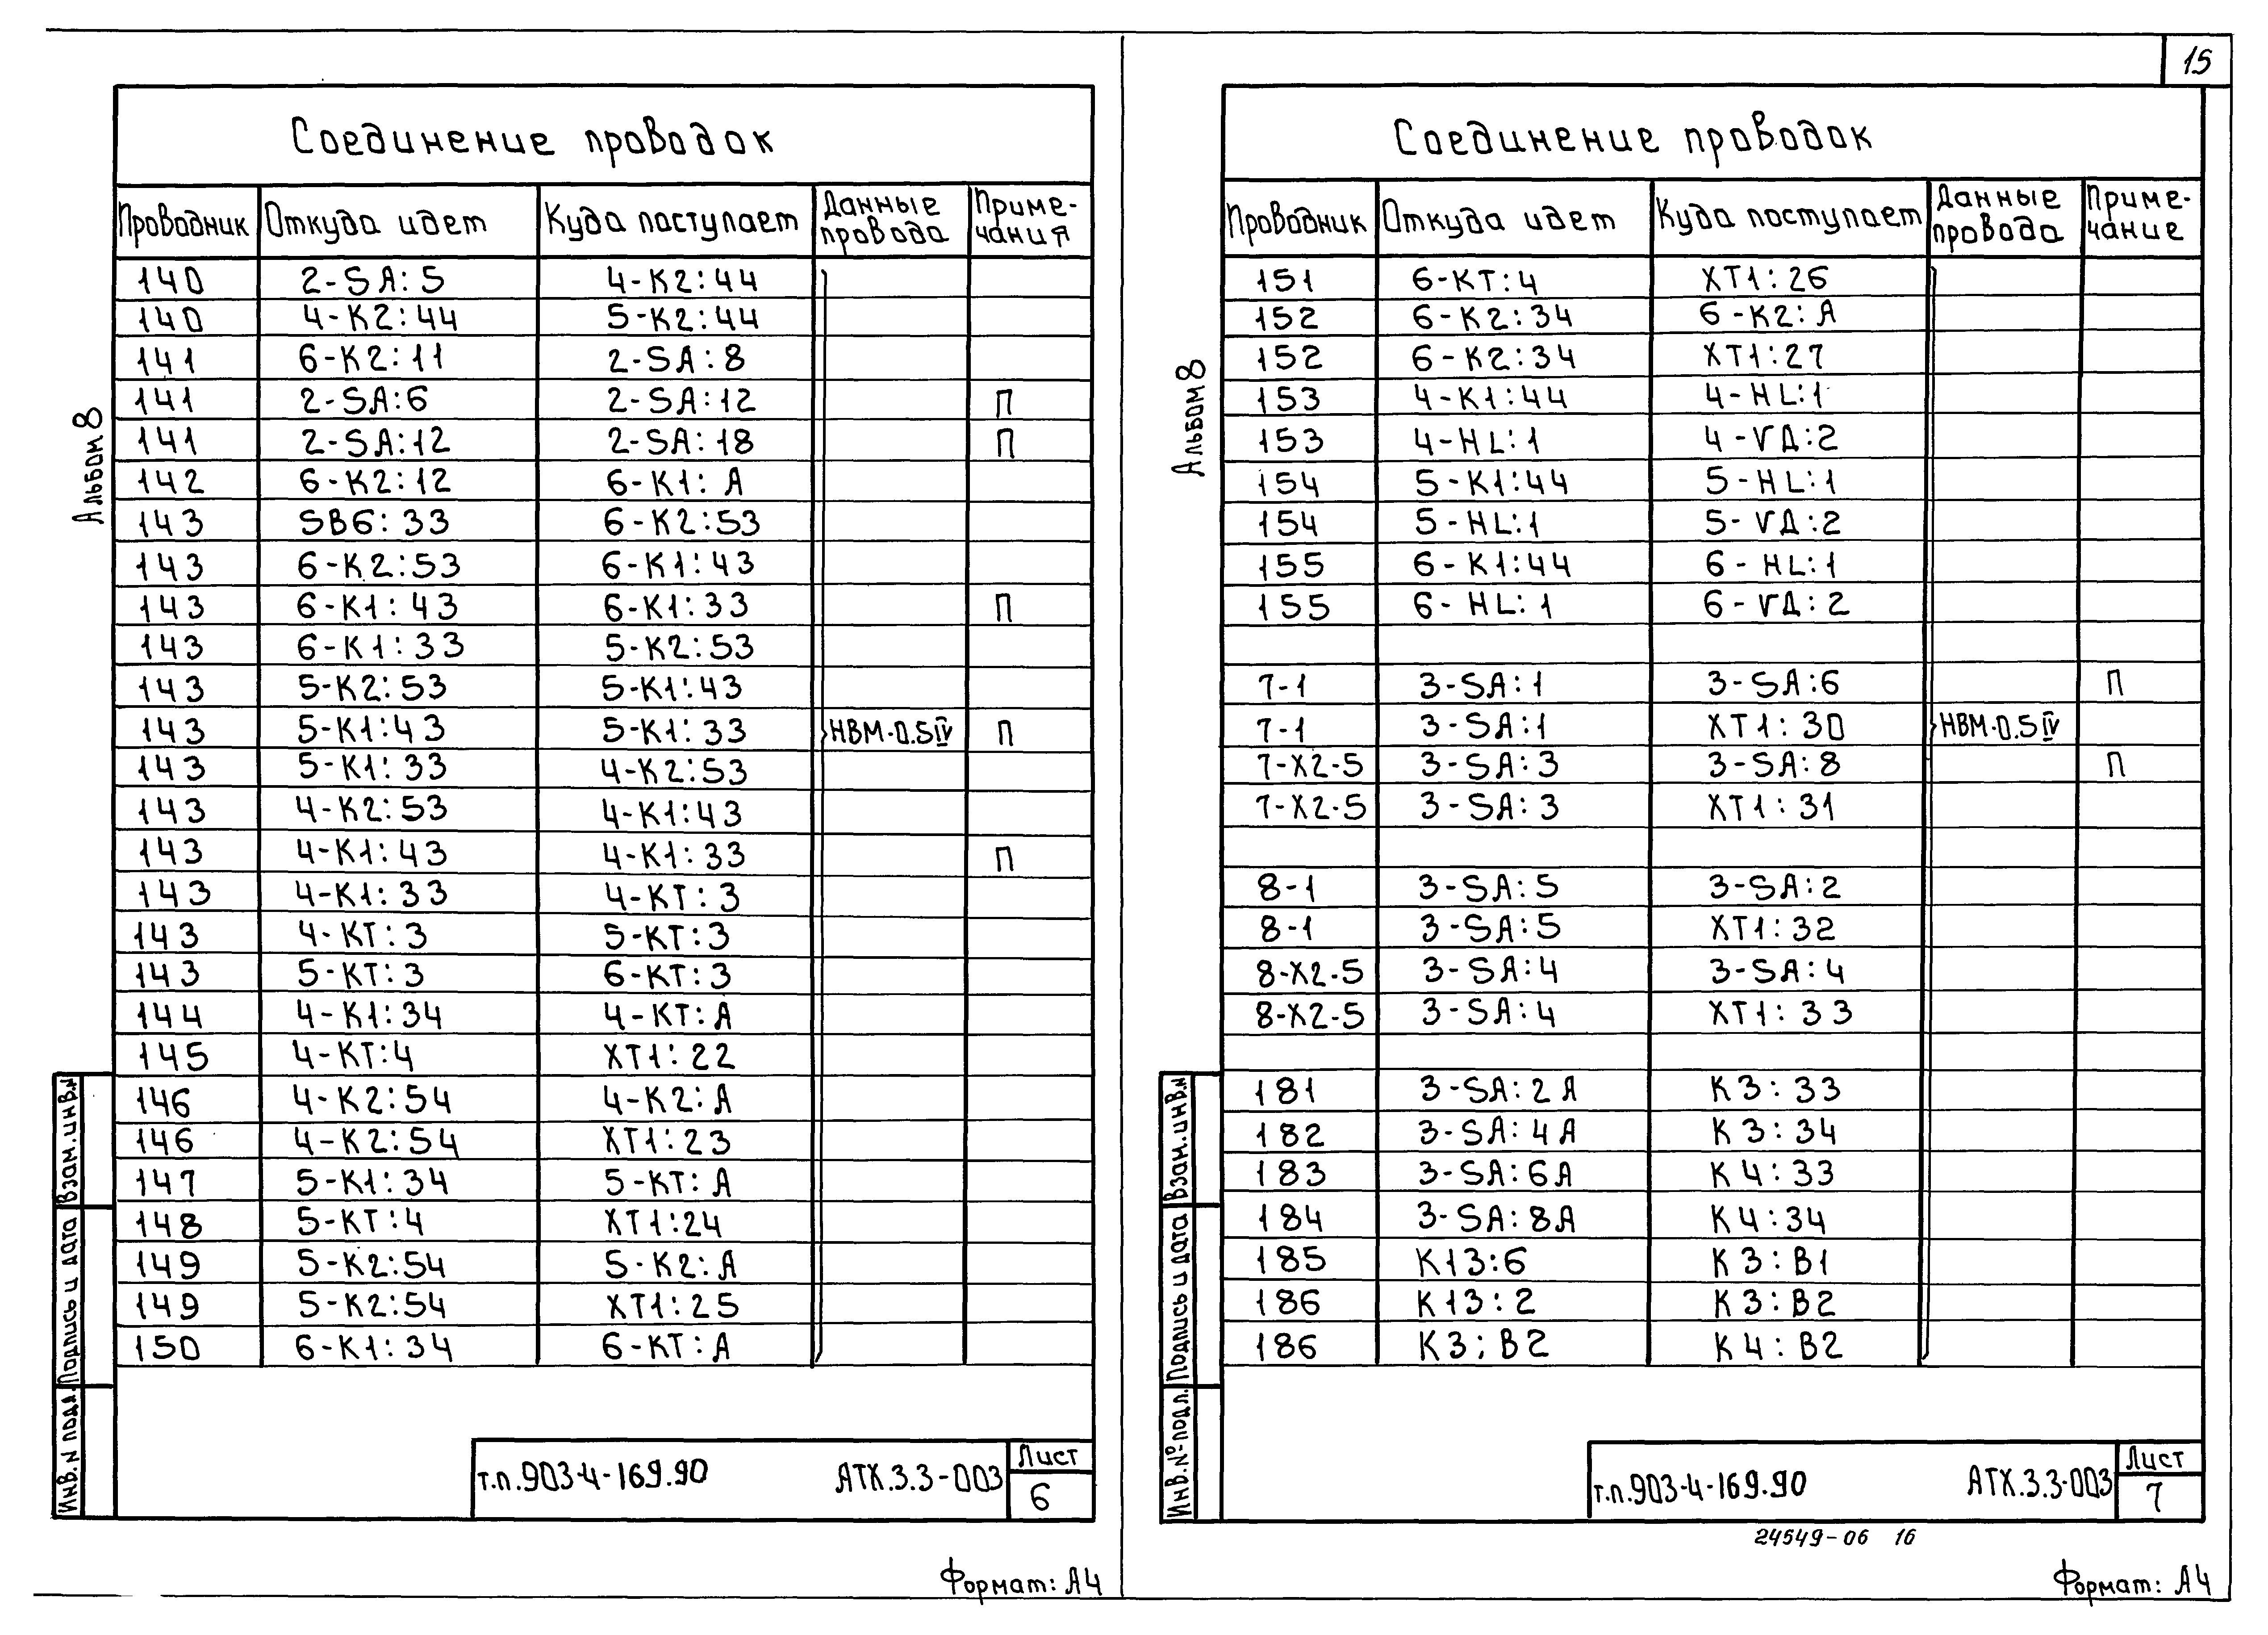 15
Соединение проводок
Проводник Откуда идет Куда поступает Данные провода Приме-чания
140 2-SA:5 4-К2:44
140 4-К2:44 5-К2:44
141 6-К2:11 2-SA:8
141 2-SA:6 2-SA:12 П
141 2-SA:12 2-SA:18 П
142 6-К2:12 6-К1:А
143 SB6:33 6-К2:53
143 6-К2:53 6-К1:43
143 6-К1:43 6-К1:33 П
143 6-К1:33 5-К2:53
143 5-К2:53 5-К1:43
143 5-К1:43 5-К1:33 НВМ-0.5 IV П
143 5-К1:33 4-К2:53
143 4-К2:53 4-К1:43
143 4-К1:43 4-К1:33 П
143 4-К1:33 4-КТ:3
143 4-КТ:3 5-КТ:3
143 5-КТ:3 6-КТ:3
144 4-К1:34 4-КТ:А
145 4-КТ:4 ХТ1:22
146 4-К2:54 4-К2:А
146 4-К2:54 ХТ1:23
147 5-К1:34 5-КТ:А
148 5-КТ:4 ХТ1:24
149 5-К2:54 5-К2:А
149 5-К2:54 ХТ1:25
150 6-К1:34 6-КТ:А
Альбом 8
Взам.инв.N
Подпись и дата
Инв.N подл.
т.п.903-4-169.90 АТХ.3.3-003 Лист
6
Формат: А4
Соединение проводок
Проводник Откуда идет Куда поступает Данные провода Приме-чание
151 6-КТ:4 ХТ1:26
152 6-К2:34 6-К2:А
152 6-К2:34 ХТ1:27
153 4-К1:44 4-HL:1
153 4-HL:1 4-VД:2
154 5-К1:44 5-HL:1
154 5-HL:1 5-VД:2
155 6-К1:44 6-HL:1
155 6-HL:1 6-VД:2
7-1 3-SA:1 3-SA:6 П
7-1 3-SA:1 ХТ1:30 НВМ-0.5 IV
7-Х2-5 3-SA:3 3-SA:8 П
7-Х2-5 3-SA:3 ХТ1:31
8-1 3-SA:5 3-SA:2
8-1 3-SA:5 ХТ1:32
8-Х2-5 3-SA:4 3-SA:4
8-Х2-5 3-SA:4 ХТ1:33
181 3-SA:2А К3:33
182 3-SA:4А К3:34
183 3-SA:6А К4:33
184 3-SA:8А К4:34
185 К13:6 К3:В1
186 К13:2 К3:В2
186 К3;В2 К4:В2
Альбом 8
Взам.инв.N
Подпись и дата
Инв.№подл.
т.п.903-4-169.90 АТХ.3.3-003 Лист
7
24549-06 16
Формат: А4